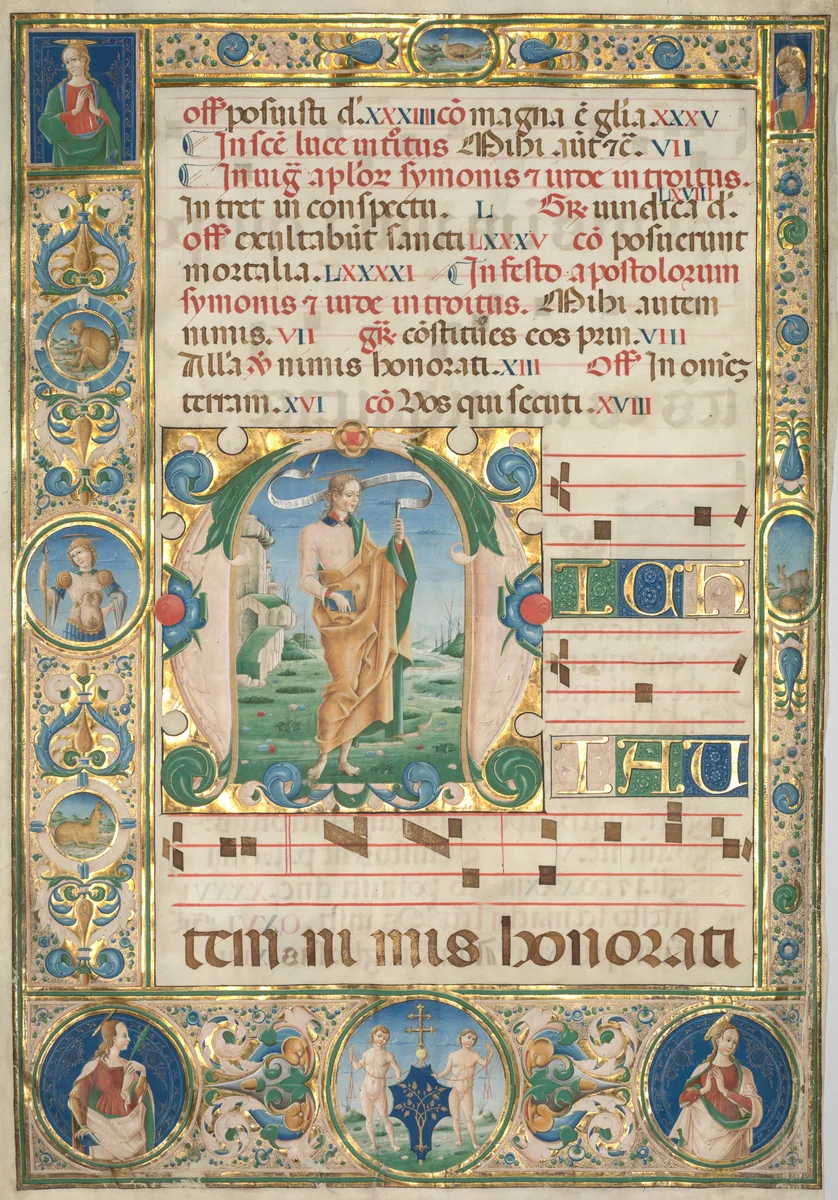 off posuisti d. XXXIIII cō magna ē glia. XXXV
In scē luce introitus Mihi aūt ⁊c̄. VII
In uiḡ aplōr symonis ⁊ iude introitus.
Intret in conspectu. L GR uindica d̄. LXVIII
off exultabūt sancti LXXXV cō posuerunt
mortalia. LXXXXI In festo apostolorum
symonis ⁊ iude introitus. Mihi autem
nimis. VII gr̄ cōstitues eos prin. VIII
Alla v̄ nimis honorati. XIII Off In omēz
terram. XVI cō Vos qui secuti. XVIII
M
ICH
I AU
tem ni mis honorati